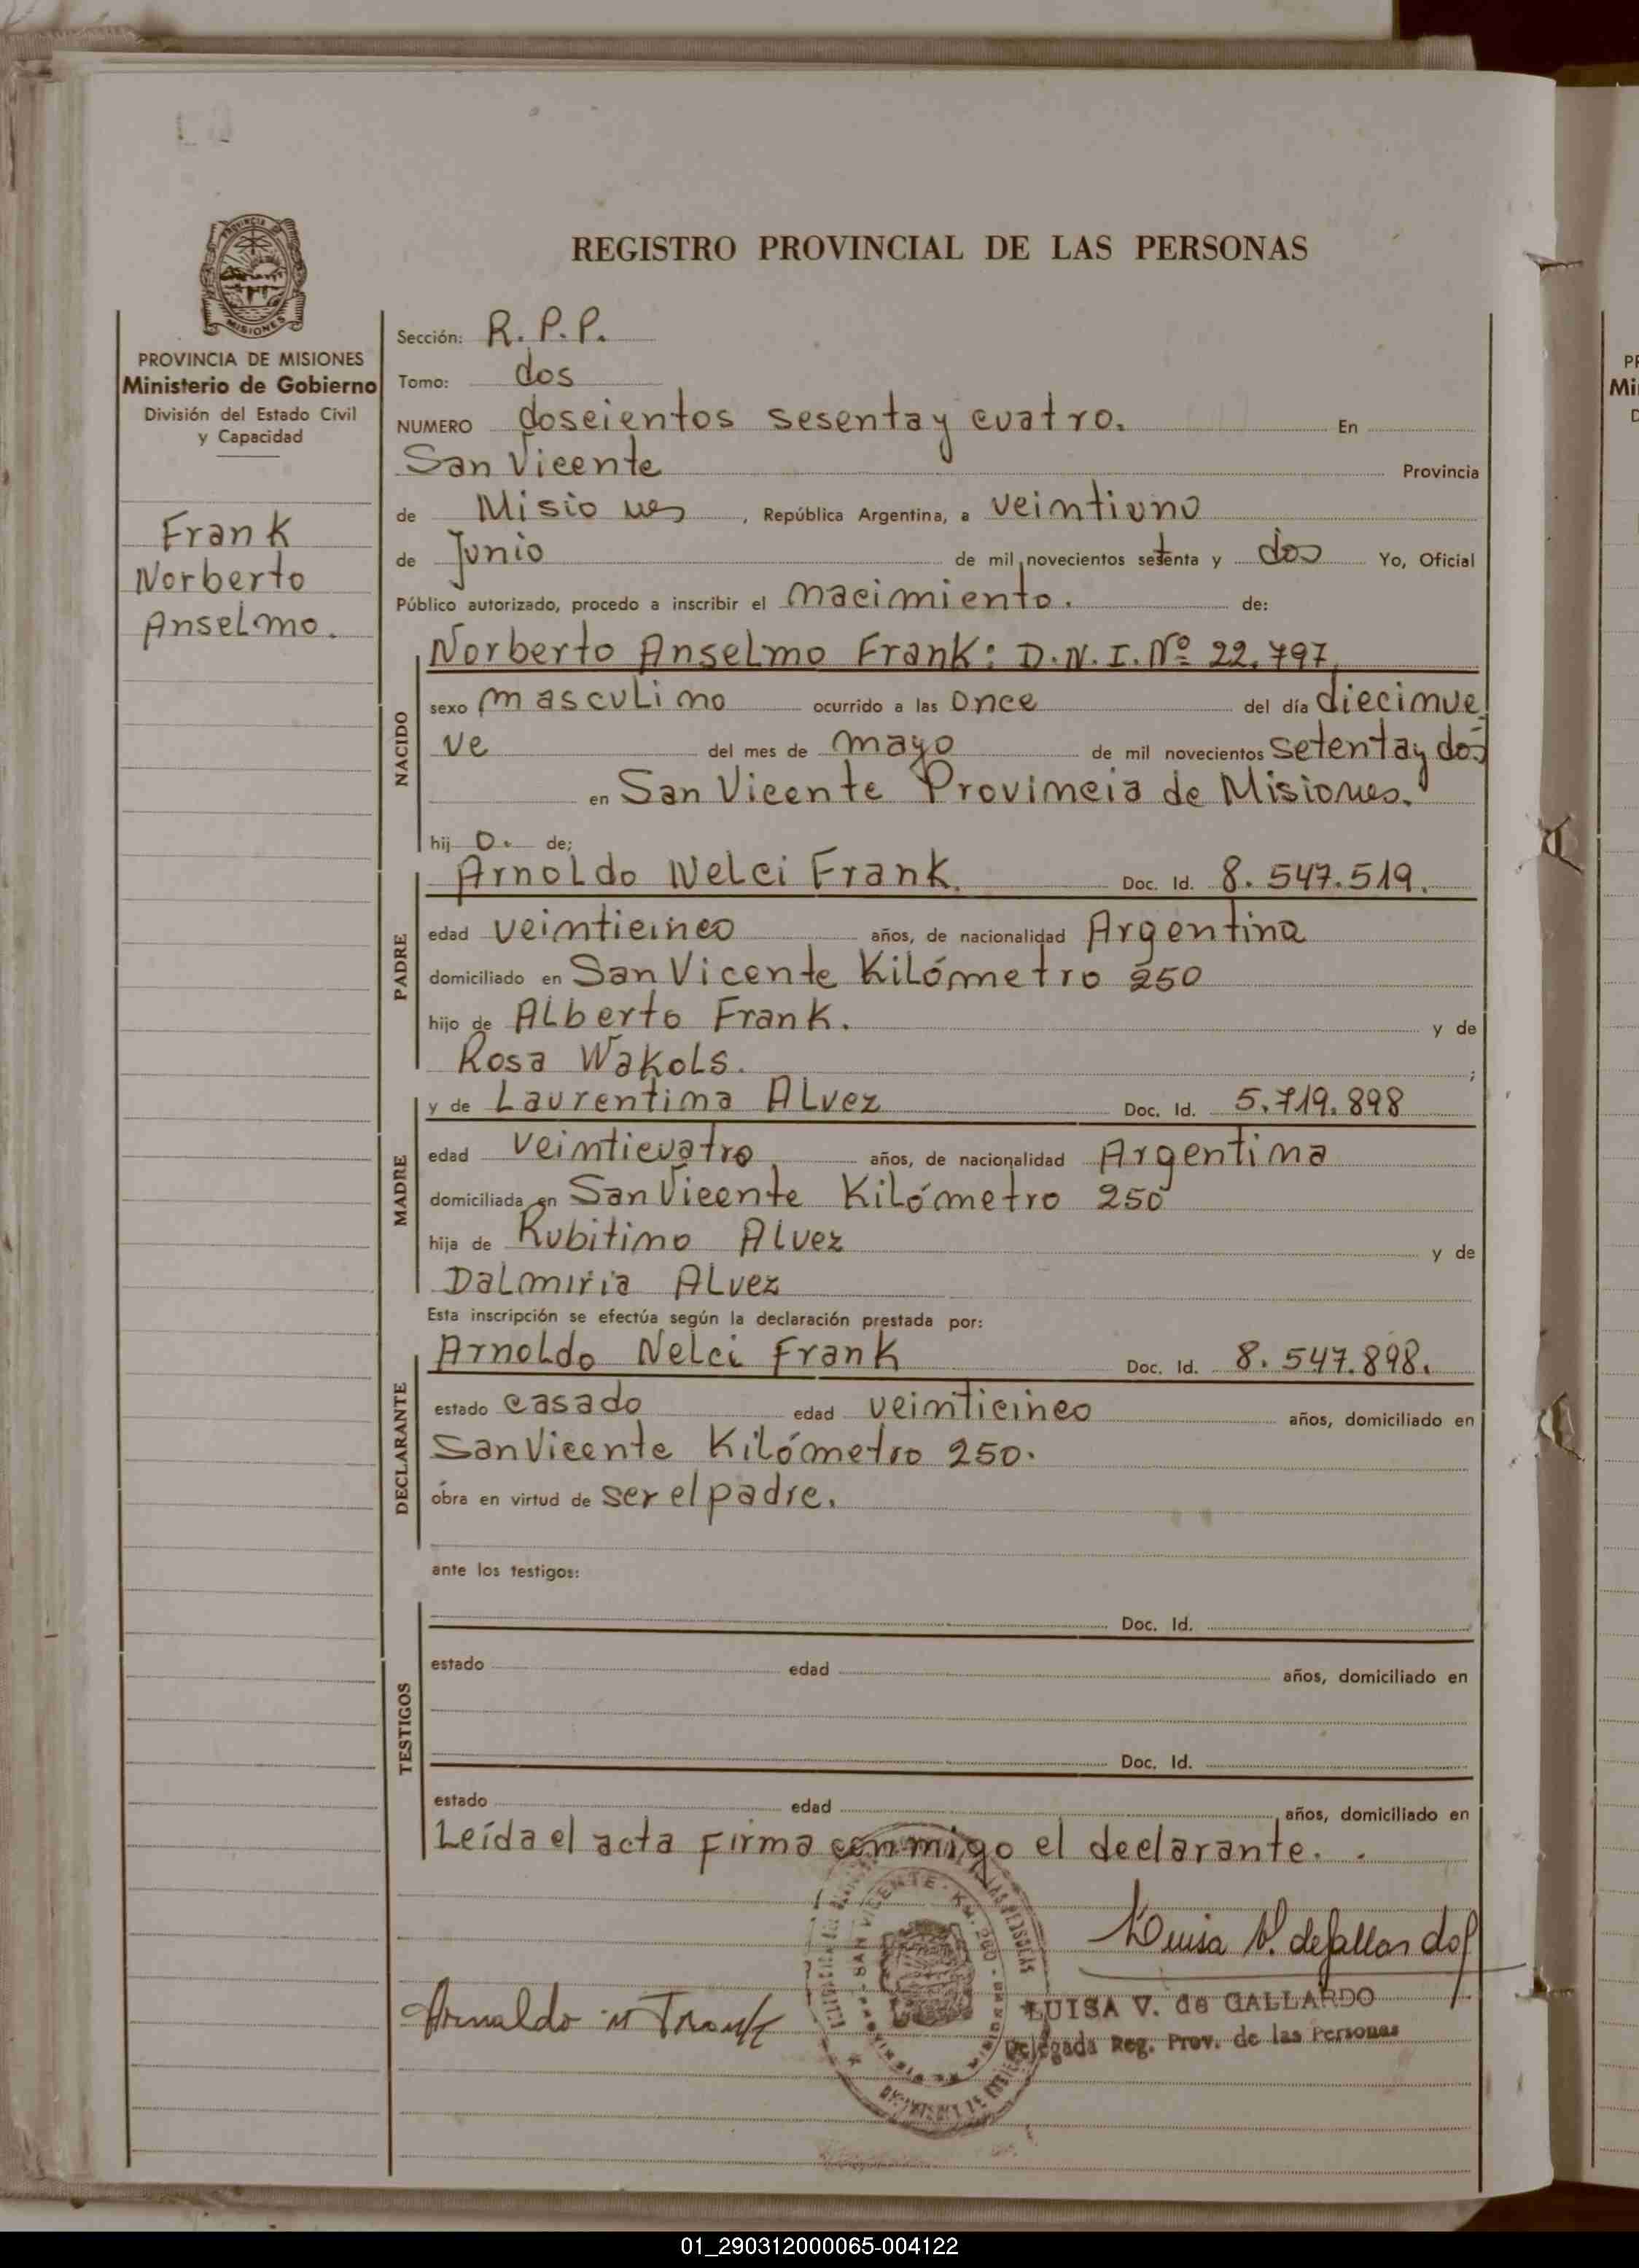 REGISTRO PROVINCIAL DE LAS PERSONAS
PROVINCIA DE MISIONES
Ministerio de Gobierno
División del Estado Civil
y Capacidad
Frank
Norberto
Anselmo.
Sección: R. P. P.
Tomo: dos
NUMERO doscientos sesenta y cuatro. En
San Vicente Provincia
de Misiones, República Argentina, a veintiuno
de Junio de mil novecientos setenta y dos Yo, Oficial
Público autorizado, procedo a inscribir el nacimiento. de:
Norberto Anselmo Frank: D.N.I. Nº 22.797
NACIDO
sexo masculino ocurrido a las once del día diecinue
ve del mes de mayo de mil novecientos setenta y dos
en San Vicente Provincia de Misiones.
hij o. de;
PADRE
Arnoldo Nelci Frank. Doc. Id. 8.547.519.
edad veinticinco años, de nacionalidad Argentina
domiciliado en San Vicente Kilómetro 250
hijo de Alberto Frank. y de
Rosa Wakols. ;
MADRE
y de Laurentina Alvez Doc. Id. 5.719.898
edad veinticuatro años, de nacionalidad Argentina
domiciliada en San Vicente Kilómetro 250
hija de Rubitino Alvez y de
Dalmiria Alvez
Esta inscripción se efectúa según la declaración prestada por:
DECLARANTE
Arnoldo Nelci Frank Doc. Id. 8.547.898.
estado casado edad veinticinco años, domiciliado en
San Vicente Kilómetro 250.
obra en virtud de ser el padre.
ante los testigos:
TESTIGOS
Doc. Id.
estado edad años, domiciliado en
Doc. Id.
estado edad años, domiciliado en
Leída el acta firma conmigo el declarante.
Luisa V. de Gallardo
Arnaldo N Frank
LUISA V. de GALLARDO
Delegada Reg. Prov. de las Personas
SAN VICENTE
01_290312000065-004122